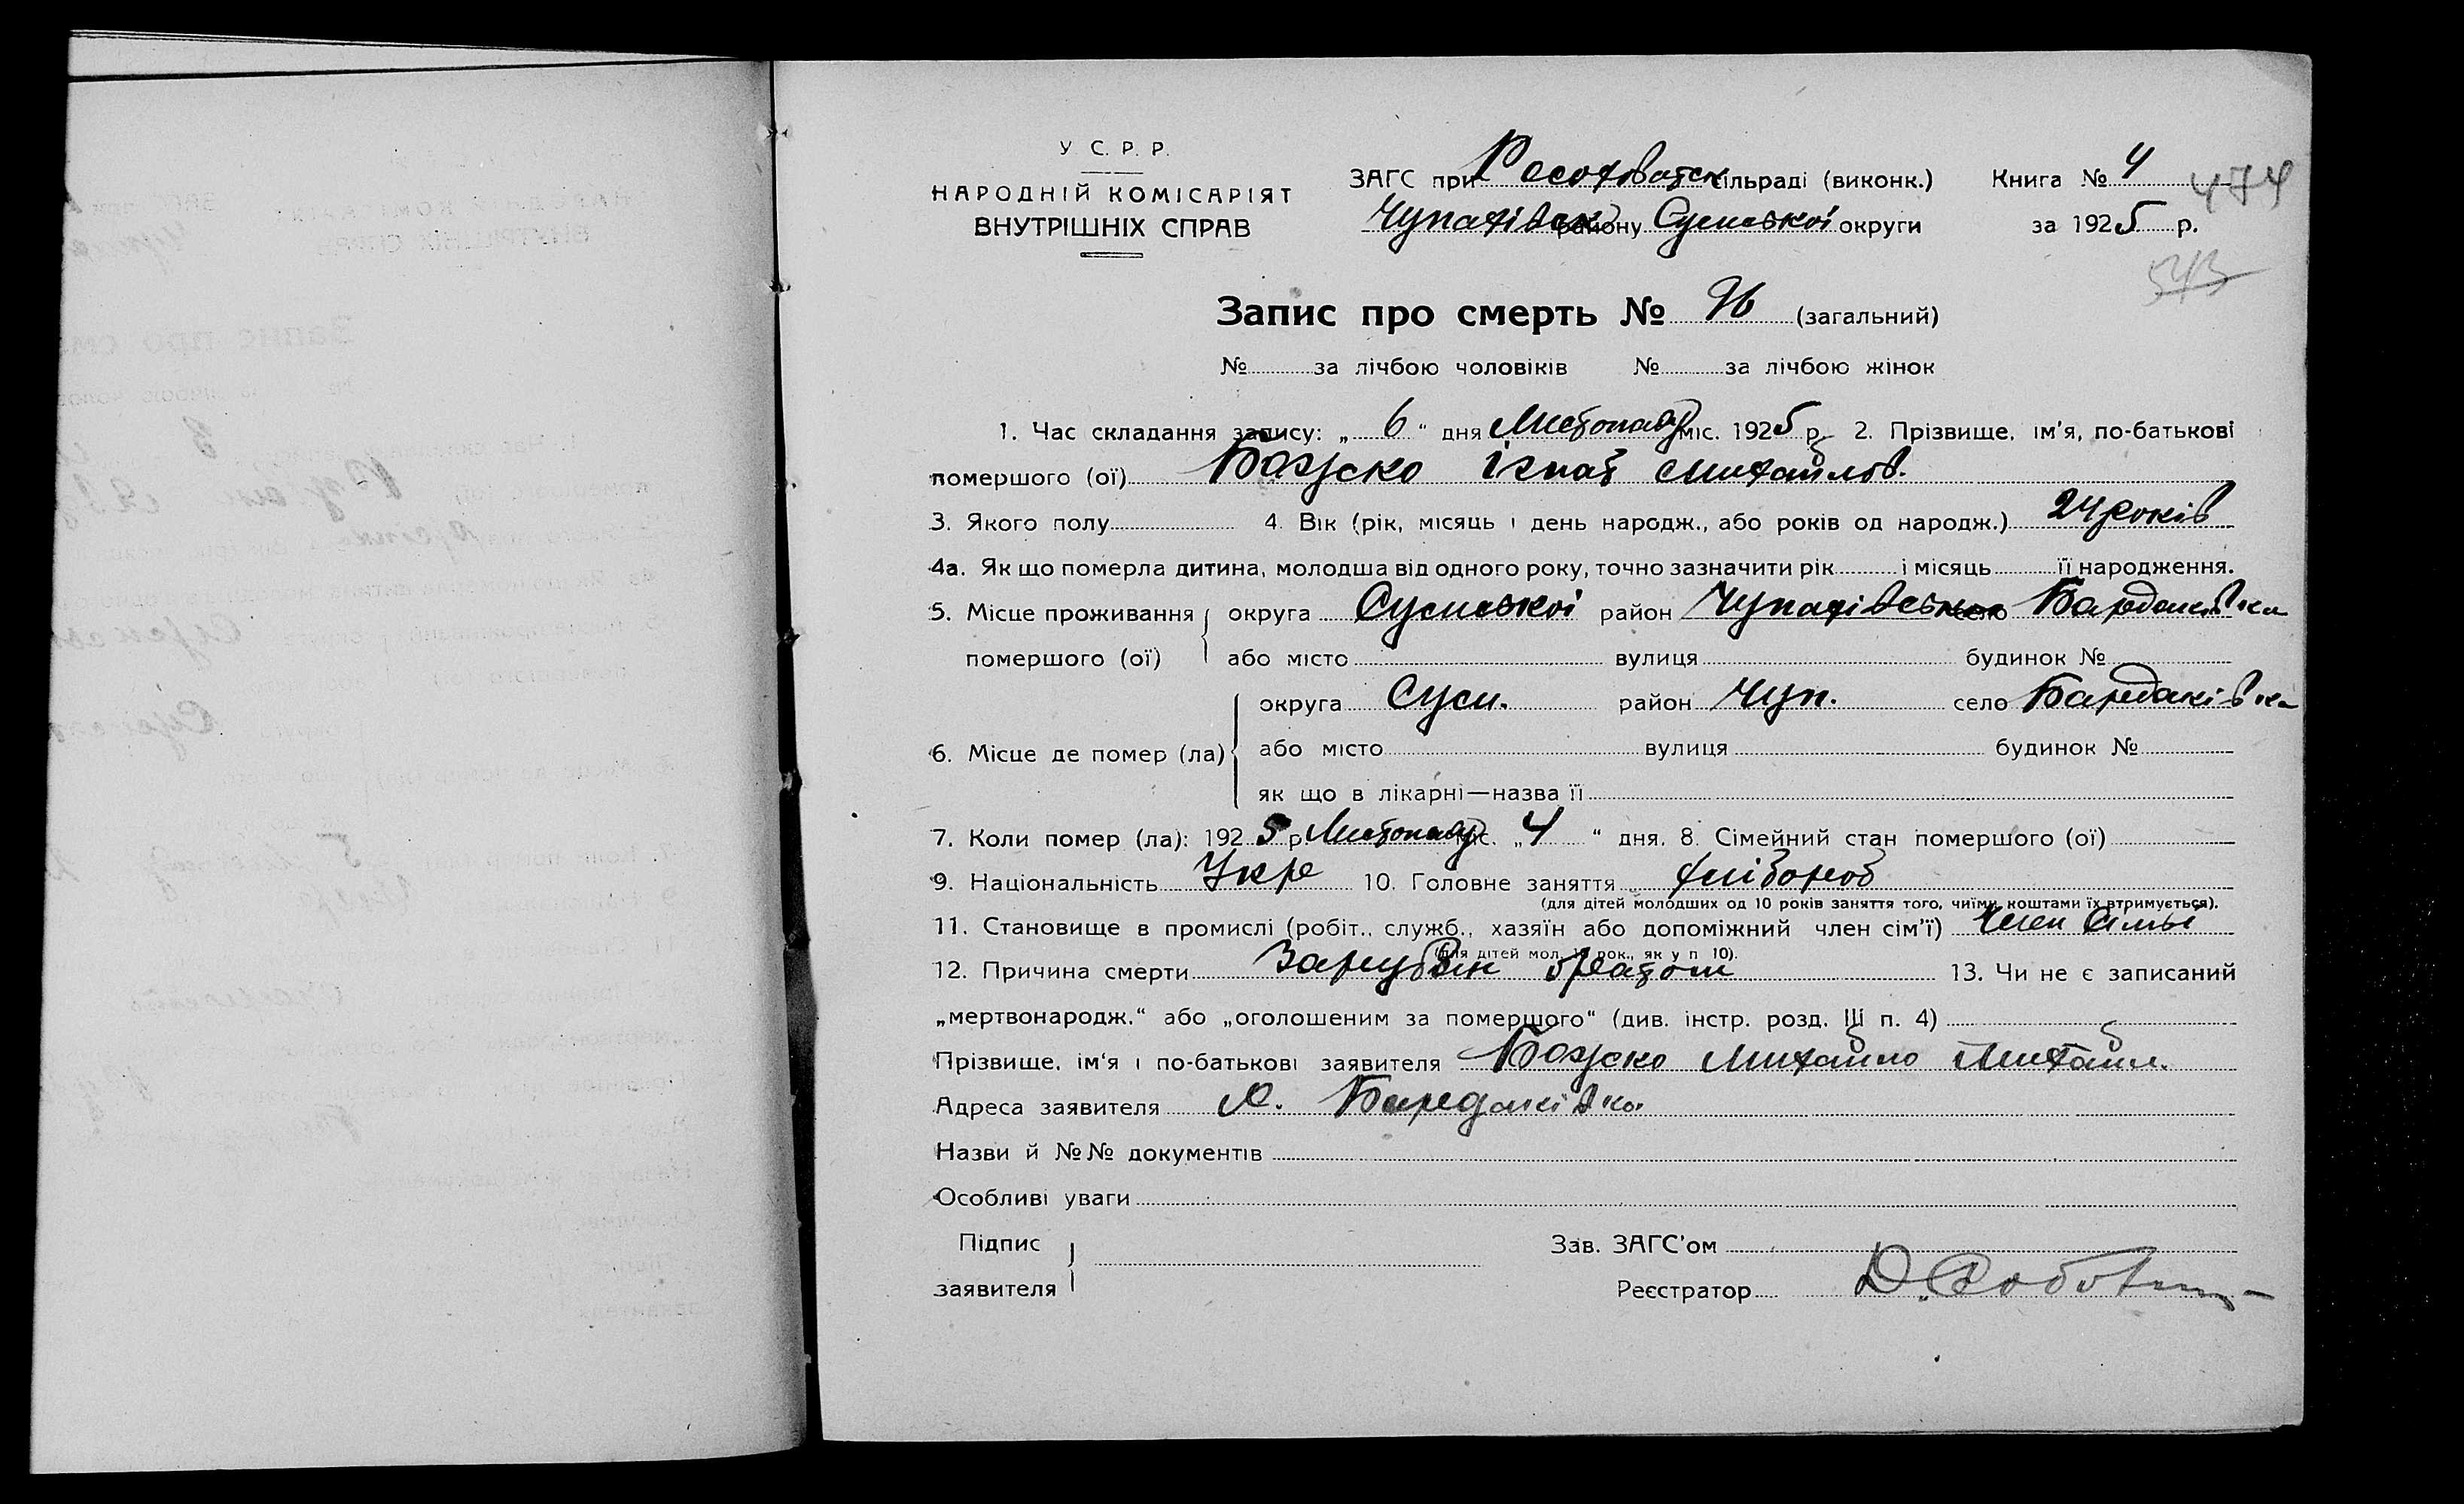 У С. Р. Р.
НАРОДНІЙ КОМІСАРІЯТ
ВНУТРІШНІХ СПРАВ
ЗАГС при Рясохватск сільраді (виконк.)
Чупахівськ району Сумської округи
Книга № 4
474
за 1925 р.
543
Запис про смерть № 96 (загальний)
№ за лічбою чоловіків № за лічбою жінок
1. Час складання запису: „ 6 “ дня Листопаду міс. 1925 р. 2. Прізвище, ім'я, по-батькові
помершого (ої) Божско Ігнат Михайлов.
3. Якого полу 4. Вік (рік, місяць і день народж., або років од народж.) 24 років
4а. Як що померла дитина, молодша від одного року, точно зазначити рік і місяць її народження.
5. Місце проживання округа Сумської район Чупахівськ село Бардаківка
помершого (ої) або місто вулиця будинок №
округа Сум. район Чуп. село Бардаківка
6. Місце де помер (ла) або місто вулиця будинок №
як що в лікарні—назва її
7. Коли помер (ла): 1925 р. Листопаду міс. „ 4 “ дня. 8. Сімейний стан помершого (ої)
9. Національність Укр 10. Головне заняття хлібороб
(для дітей молодших од 10 років заняття того, чиїми коштами їх втримується).
11. Становище в промислі (робіт., служб., хазяїн або допоміжний член сім'ї) Член Сімьї
(для дітей мол. 10 рок., як у п 10).
12. Причина смерти Зарубвін братом 13. Чи не є записаний
„мертвонародж.“ або „оголошеним за помершого“ (див. інстр. розд. III п. 4)
Прізвище, ім'я і по-батькові заявителя Божско Михайло Михайл.
Адреса заявителя с. Бардаківка
Назви й №№ документів
Особливі уваги
Підпис
заявителя
Зав. ЗАГС'ом
Реєстратор Д.